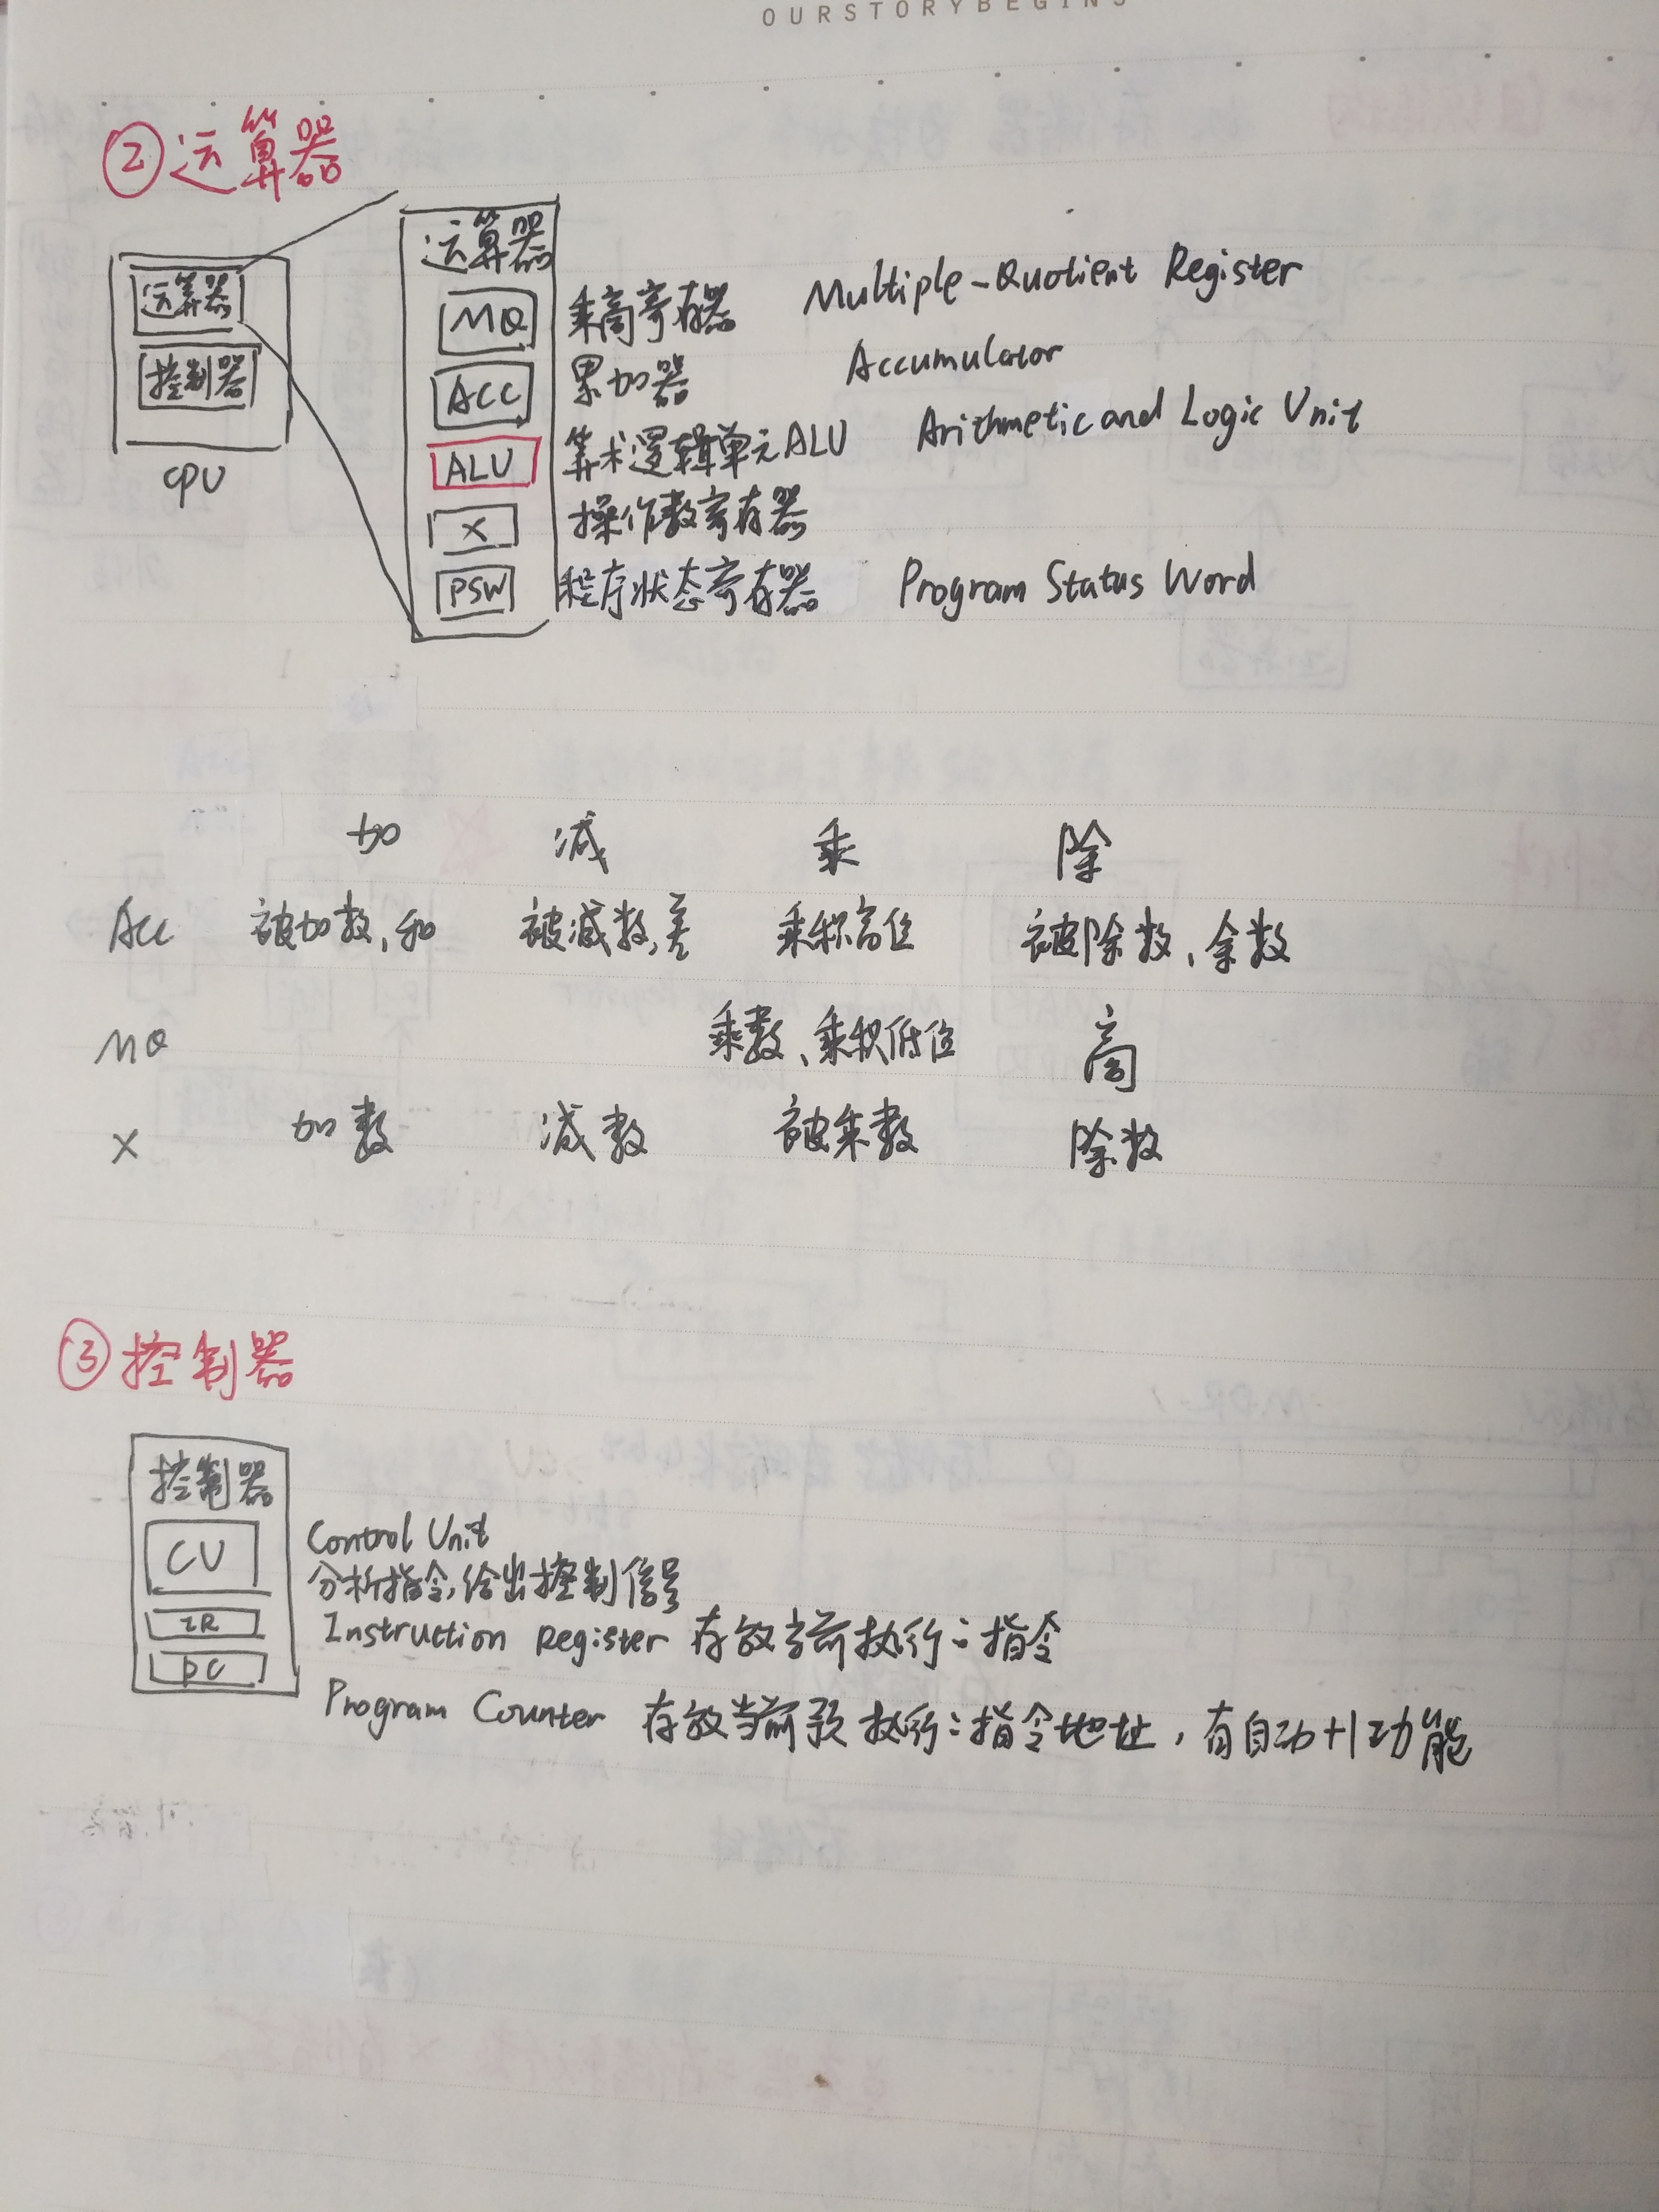 OURSTORYBEGINS
②运算器
运算器
控制器
CPU
运算器
MQ 乘商寄存器 Multiple-Quotient Register
ACC 累加器 Accumulator
ALU 算术逻辑单元ALU Arithmetic and Logic Unit
X 操作数寄存器
PSW 程序状态寄存器 Program Status Word
加 减 乘 除
ACC 被加数、和 被减数,差 乘积高位 被除数、余数
MQ 乘数、乘积低位 商
X 加数 减数 被乘数 除数
③控制器
控制器
CU Control Unit
分析指令,给出控制信号
IR Instruction Register 存放当前执行の指令
PC Program Counter 存放当前欲执行の指令地址,有自动+1功能